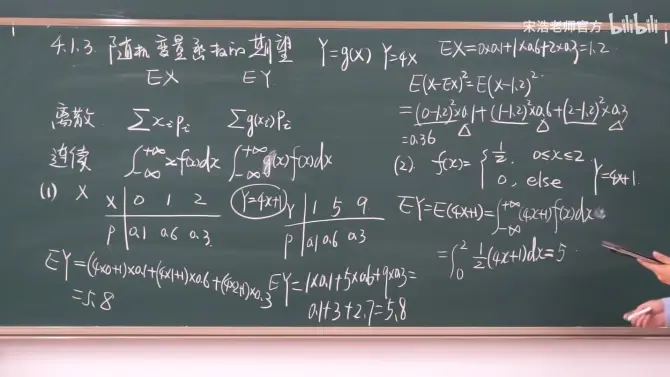 宋浩老师官方 bilibili
4.1.3 随机变量函数的期望 Y=g(x) Y=4X
EX EY
离散 ∑xᵢpᵢ ∑g(xᵢ)pᵢ
连续 ∫₋∞⁺∞ xf(x)dx ∫₋∞⁺∞ g(x)f(x)dx
(1) X
X 0 1 2
P 0.1 0.6 0.3
Y=4X+1
Y 1 5 9
P 0.1 0.6 0.3
EY=(4×0+1)×0.1+(4×1+1)×0.6+(4×2+1)×0.3
=5.8
EY=1×0.1+5×0.6+9×0.3=
0.1+3+2.7=5.8
EX=0×0.1+1×0.6+2×0.3=1.2
E(X-EX)²=E(X-1.2)²
=(0-1.2)²×0.1+(1-1.2)²×0.6+(2-1.2)²×0.3
=0.36
(2) f(x)={ 1/2, 0≤x≤2
0, else
Y=4X+1
EY=E(4X+1)=∫₋∞⁺∞ (4x+1)f(x)dx
=∫₀² 1/2(4x+1)dx=5